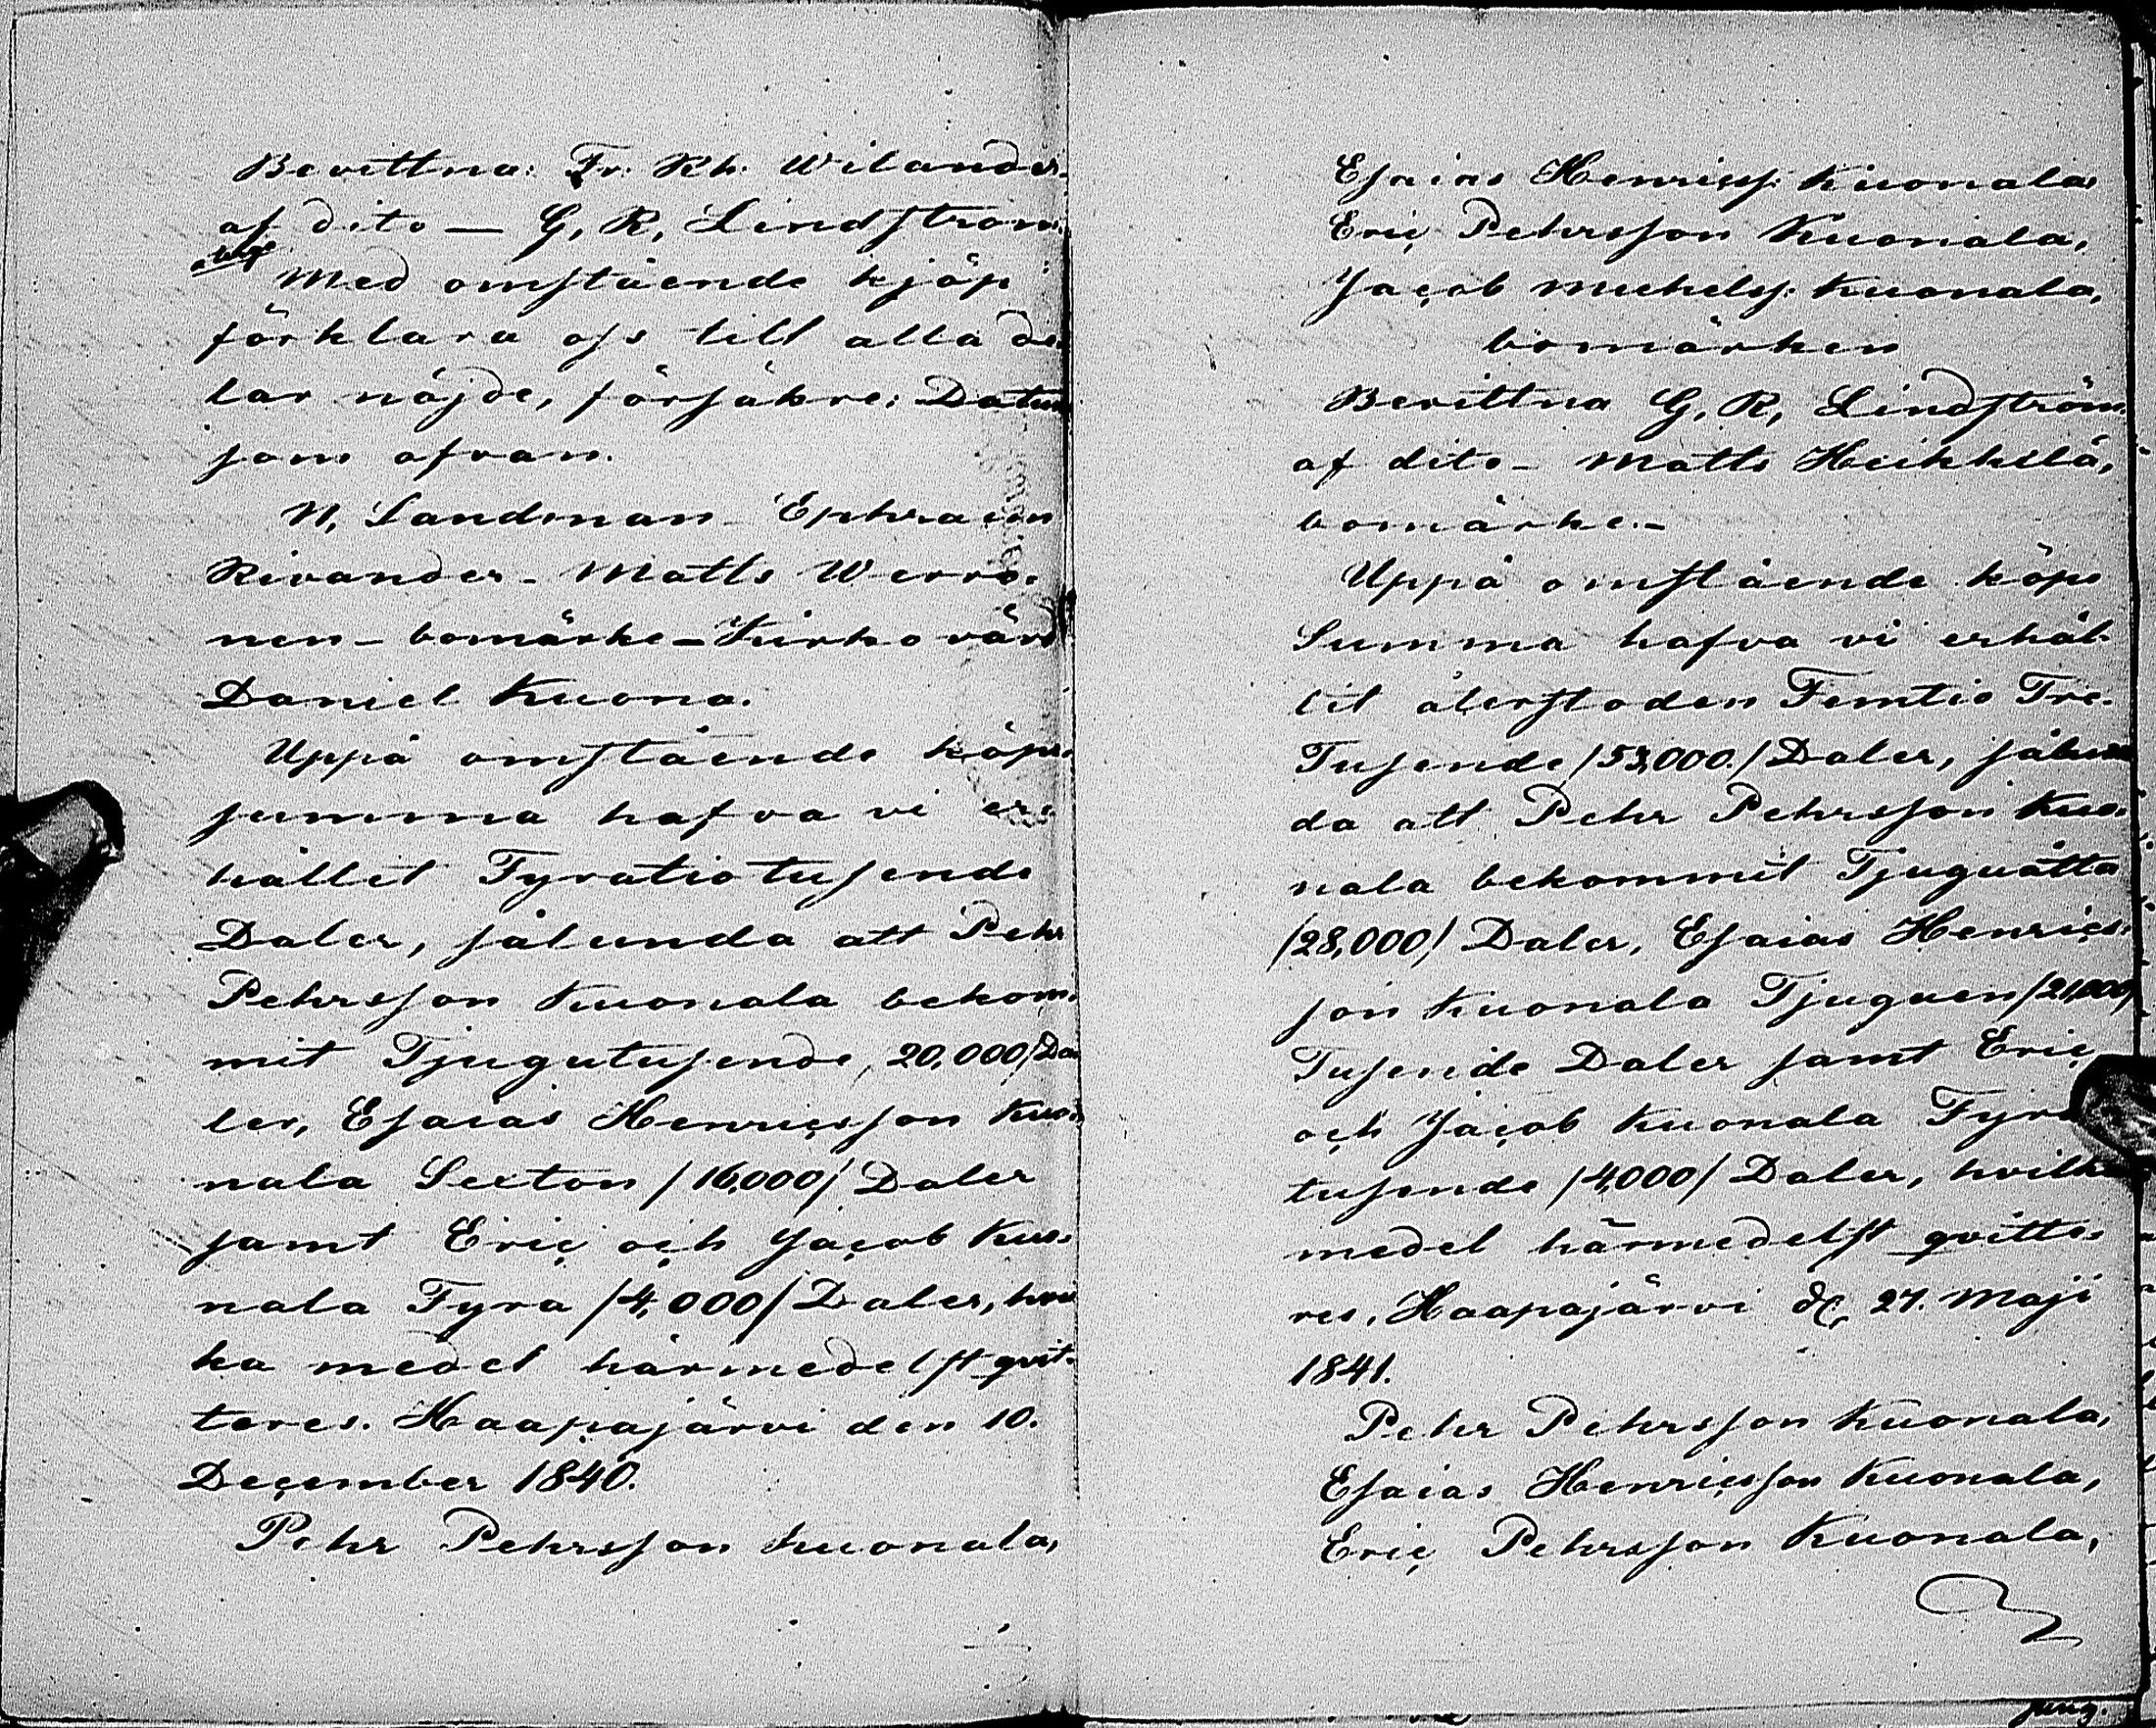 Bevittna: Fr. Rh. Wilander.
af dito — G, R, Lindström.
Med omstående kjöp
förklara oss till alla de-
lar nöjde, försäkre: Datum
som ofvan.
N, Sandman – Ephraim
Rivander – Matts Werro-
nen – bomärke – Kirko värd
Daniel Kuona.
Uppå omstående köpe-
summa hafva vi er-
hållit Fyratiotusende
Daler, sålunda att Pehr
Pehrsson Kuonala bekom-
mit Tjugutusende, 20,000/ Da
ler, Esaias Henricsson Kuo-
nala Sexton /16,000/ Daler
samt Eric och Jacob Kuo-
nala Fyra /4,000/ Daler, hvil
ka medel härmedelst qvit-
teres. Haapajärvi den 10.
December 1840.
Pehr Pehrsson Kuonala,
Esaias Henricss: Kuonala
Eric Pehrsson Kuonala,
Jacob Michelss: Kuonala,
bomärken
Bevittna G, R, Lindström
af dito – Matts Heikkilä,
bomärke. –
Uppå omstående köpe
Summa hafva vi erhål-
lit återstoden Femtio Tre-
Tusende /53,000./ Daler, sålun
da att Pehr Pehrsson Kuo-
nala bekommit Tjuguåtta
/28,000/ Daler, Esaias Henrics-
son Kuonala Tjuguen /21,000/
Tusende Daler samt Eric
och Jacob Kuonala Fyra
tusende /4,000/ Daler, hvilka
medel härmedelst qvitte-
res, Haapajärvi d. 27. Maji
1841.
Pehr Pehrsson Kuonala,
Esaias Henricsson Kuonala,
Eric Pehrsson Kuonala,